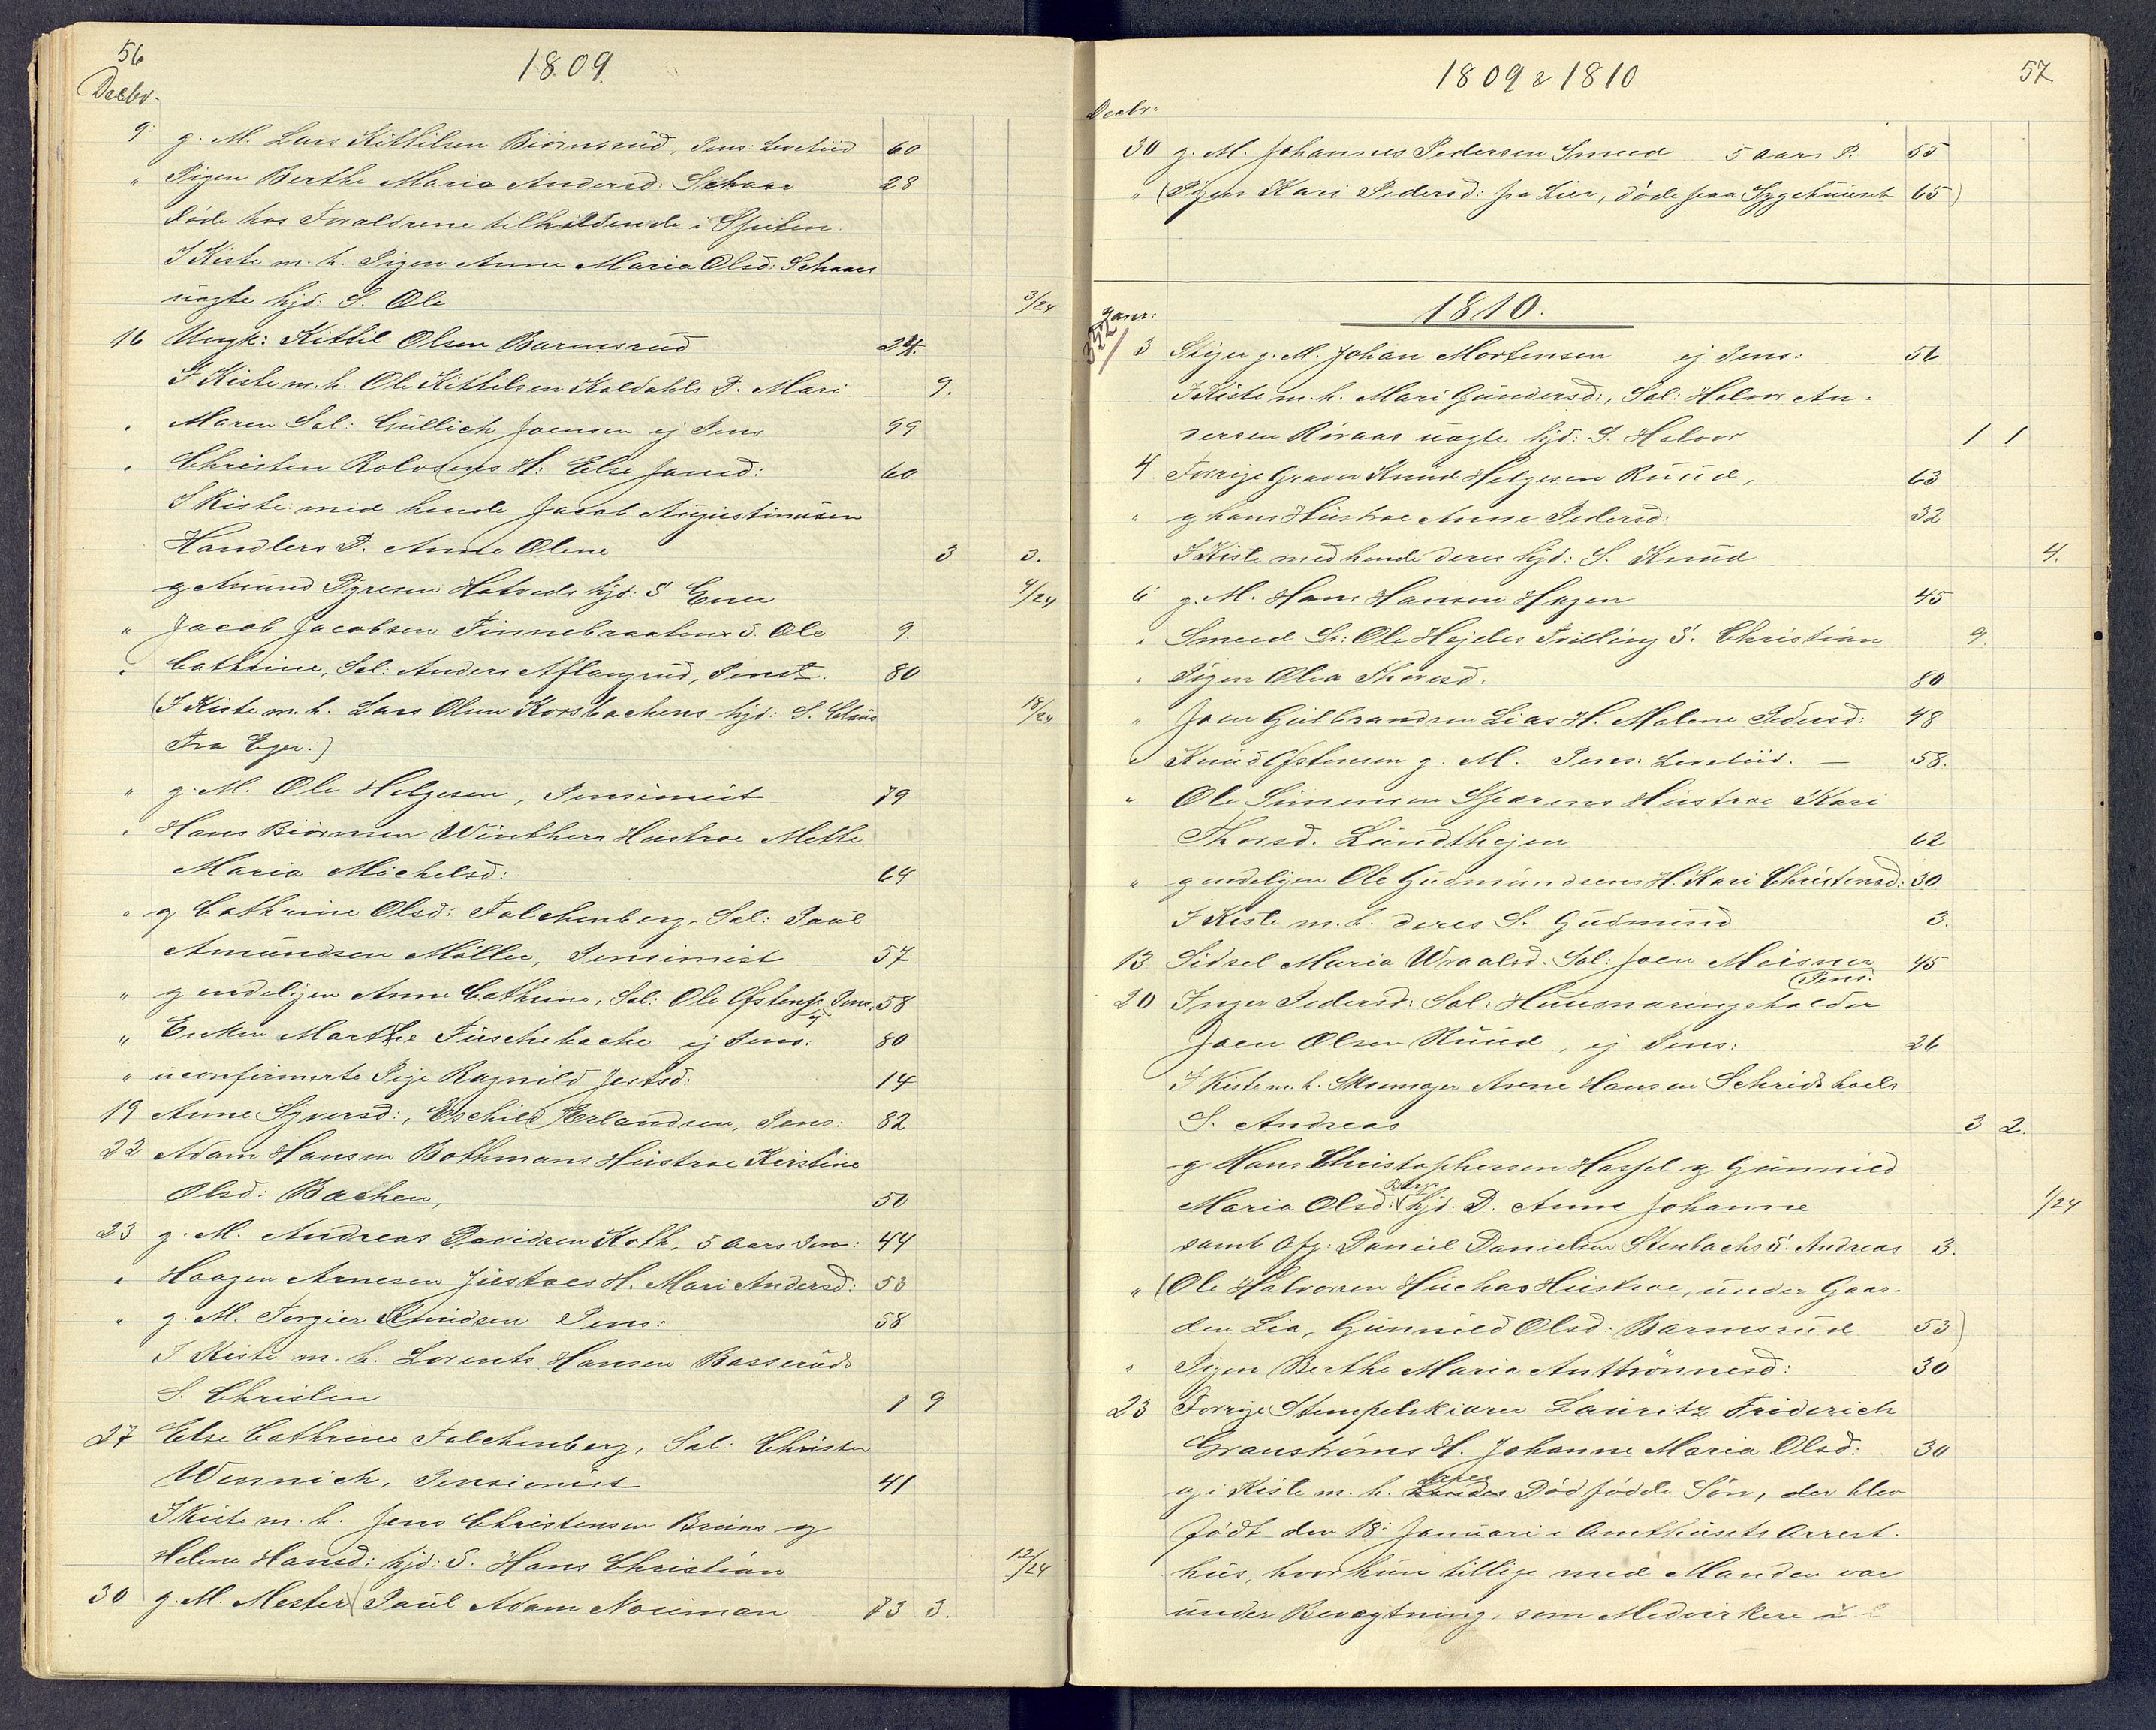 56
1809
Decbr.
9: g. M. Lars Kittilsen Biörnsrud, Pens: Levetiid 60
" Pigen Berthe Maria Andersd: Schaar 28
døde hos Forældrene tilholdende i
I Kiste m. h. Pigen Anne Maria Olsd: Schaars
uægte hjd: S. Ole 3/24
16 Ungk: Kittil Olsen Barmsrud 24.
I Kiste m. h. Ole Kittilsen Koldahls D. Mari 9.
" Maren Sal: Gullich Joensen ej Pens 99
" Christen Rolvsens H: Else Jansd: 60
I Kiste med hende Jacob Augustinusen
Handlers D. Anne Olene 3 3.
g Amund Hotvedts hjd: S Ener 4/24
" Jacob Jacobsen Finnebraatens S. Ole 9
" Cathrine, Sal: Anders Aflangrud, Penst. 80
(I Kiste m. h. Lars Olsen Korsbachens hjd: S. Claus 18/24
Fra Eger.)
" g. M. Ole Helgesen, Pensionist 79
" Hans Biörnsen Winthers Hustroe Mette
Maria Michelsd: 64
" g Cathrine Olsd: Falchenberg, Sal: Paul
Amundsen Möller, Pensionist 57
" g endeligen Anne Cathrine, Sal: Ole Ofstens: ej Pens. 58
" Enken Marthe Fuschebache ej Pens: 80
" uconfirmerte Pige Ragnild Jensd: 14
19 Anne Syversd:, Eschild Erlandsen, Pens: 82
22 Adam Hansen Bothmans Hustroe Kirstine
Olsd: Bachen, 50
23 g. M. Andreas Davidsen Koth, 5 Aars Pens: 44
" Haagen Arnesen Justoes H. Mari Andersd: 53
" g. M. Torgier Knudsen Pens: 58
I Kiste m. h. Lorents Hansen Basseruds
S. Christen 1 9
27 Else Cathrine Falchenberg, Sal: Christen
Wennich, Pensionist 41
I Kiste m. h. Jens Christensen Bruns og
Helene Hansd: hjd: S. Hans Christian 12/24
30 g. M. Mester Paul Adam Neuman 73 3.
1809 & 1810
57
Decbr.
30 g. M. Johannes Pedersen Smed 5 Aars P. 55
" (Pigen Kari Pedersd: fra Lier, døde paa Sygehuuset 65)
1810.
Janr:
3 Stiger g. M. Johan Mortensen ej Pens: 56
I Kiste m. h. Mari Gundersd:, Sal: Halvor An-
dersen Röraas uægte hjd: S. Halvor 1 1
4 Forrige Graver Knud Helgesen Ruud, 63
" g hans Hustroe Anne Pedersd: 32
I Kiste med hende deres hjd: S. Knud 4.
6 g. M. Hans Hansen Hagen 45
" Smed Sr: Ole Hejdes Tvilling S. Christian 9.
" Pigen Olea Thoresd. 80
" Joen Gulbrandsen Lias H. Malene Pedersd: 48
" Knud Ofstensen g. M. Pens: Levetiid. — 58.
" Ole Simensen Sparens Hustroe Kari
Thorsd. Lundthejen 62
" g endeligen Ole Gudmundsens H. Kari Christensd: 30
I Kiste m. h. deres S. Gudmund 3.
13 Sidsel Maria Wraalsd. Sal: Joen Meisner 45
(Pens.
20 Inger Pedersd: Sal: Huusnæringsholder
Joen Olsen Ruud, ej Pens: 26
I Kiste m. h. Skomager Arne Hansen Schridshoels
S. Andreas 3 2.
g Hans Christophersen Hassel g Gunnild
Maria Olsd: hjd. D. Anne Johanne 1/24
samt Daniel Danielsen Stenbachs S. Andreas 3.
" (Ole Halvorsen Huchas Hustroe, under Gaar-
den Lia, Gunnild Olsd: Barmsrud 53)
" Pigen Berthe Maria Anthönnesd: 30
23 Forrige Stempelskiærer Lauritz Friderich
Granströms H. Johanne Maria Olsd: 30
g i Kiste m. h. Dødfødde Søn, der blev
født den 18: Januari i Amthusets Arrest-
huus, hvor hun tillige med Manden var
under Bevogtning, som Medvirkere